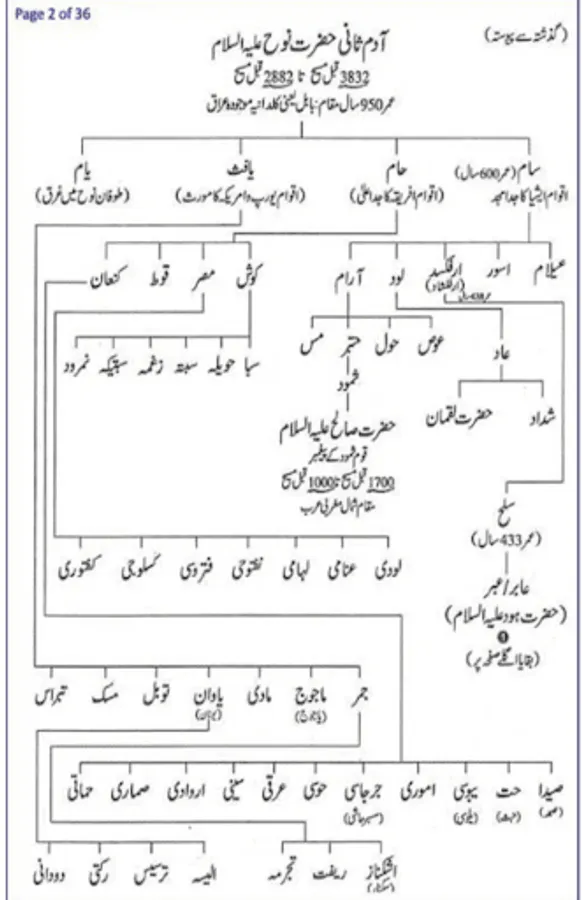 Page 2 of 36
(گذشتہ سے پیوستہ)
آدم ثانی حضرت نوح علیہ السلام
3832 قبل مسیح تا 2882 قبل مسیح
عمر 950 سال مقام: بابل یعنی کلدانیہ موجودہ عراق
سام (عمر 600 سال) حام یافث یام
اقوام ایشیا کا جد امجد (اقوام افریقہ کا جد اعلیٰ) (اقوام یورپ و امریکہ کا مورث) (طوفان نوح میں غرق)
عیلام اسور ارفکسد لود آرام کوش مصر قوط کنعان
(ارفکشاد)
عمر 438 سال
عوص حول جثر مس
سبا حویلہ سبتہ زغمہ سبتیکہ نمرود
عاد
ثمود
شداد حضرت لقمان
حضرت صالح علیہ السلام
قوم ثمود کے پیغمبر
1700 قبل مسیح تا 1000 قبل مسیح
مقام شمال مغربی عرب
سلح
(عمر 433 سال)
لودی عنامی لہامی نفتوحی فتروسی کسلوحی کفتوری
عابر/عبر
(حضرت ہود علیہ السلام)
1
(بقایا اگلے صفحہ پر)
جمر ماجوج مادی یاوان توبل مسک تیراس
(یاجوج) (یونان)
صیدا حت یبوسی اموری جرجاسی حوی عرقی سینی اروادی صماری حماتی
اشکناز ریفت تجرمہ الیسہ ترسیس رکتی دودانی